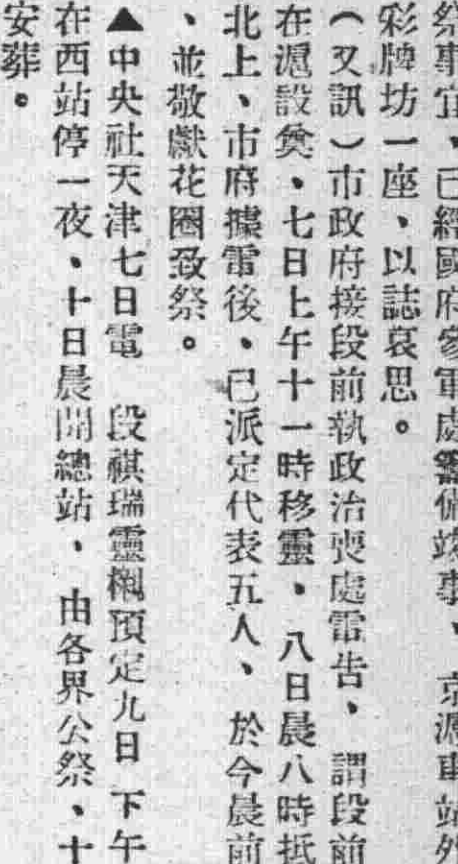 祭事宜、已經國府參軍處籌備竣事、京滬車站外
彩牌坊一座、以誌哀思。
（又訊）市政府接段前執政治喪處電告、謂段前
在滬設奠、七日上午十一時移靈、八日晨八時抵
北上、市府據電後、已派定代表五人、於今晨前
、並敬獻花圈致祭。
▲中央社天津七日電　段祺瑞靈櫬預定九日下午
在西站停一夜、十日晨開總站、由各界公祭、十
安葬。